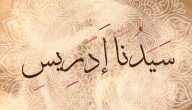 سَيِّدُنَا إِدْرِيس